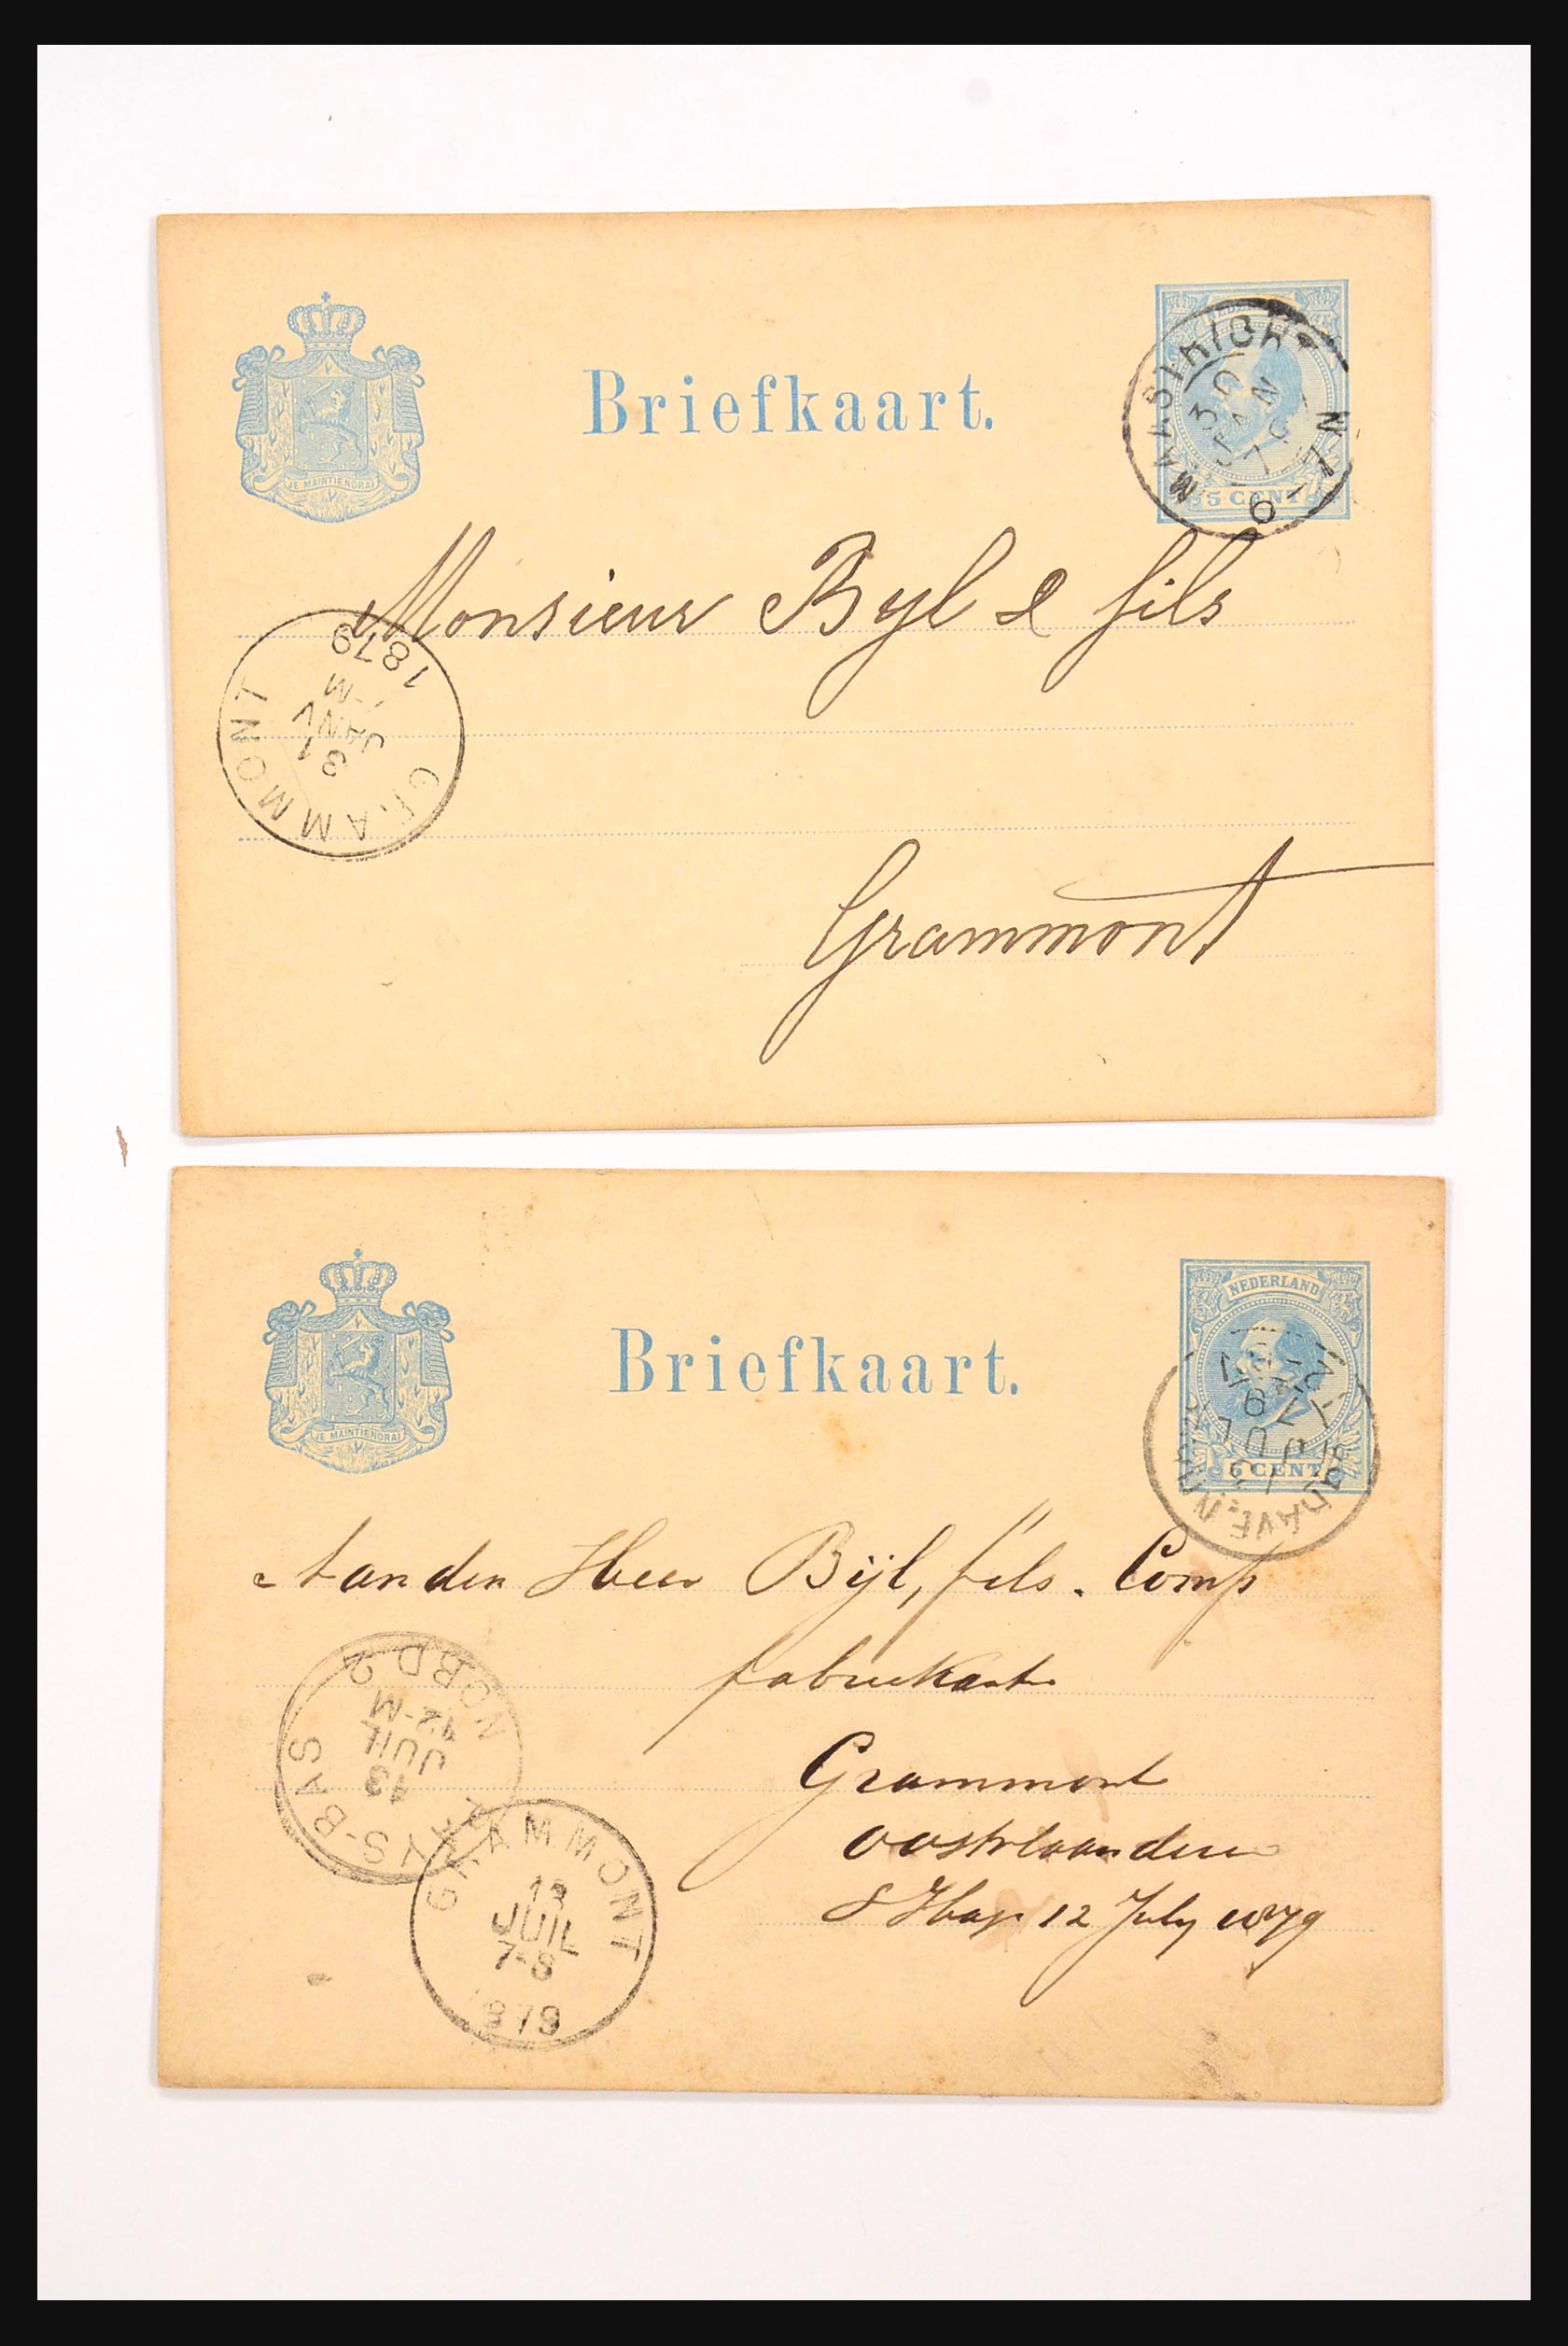 Briefkaart.
JE MAINTIENDRAI
5 CENT
MAASTRICHT
30
JAN
6-7N
Monsieur Byl & fils
GRAMMONT
31
JANV
-M
1879
Grammont
Briefkaart.
JE MAINTIENDRAI
NEDERLAND
5 CENT
JUL
79
Aan den Heer Bijl, fils. Comp
fabriekant
Grammont
Oostvlaanderen
S Hage 12 July 1879
PAYS-BAS
13
JUIL
12-M
NORD 2
GRAMMONT
13
JUIL
7-8
1879